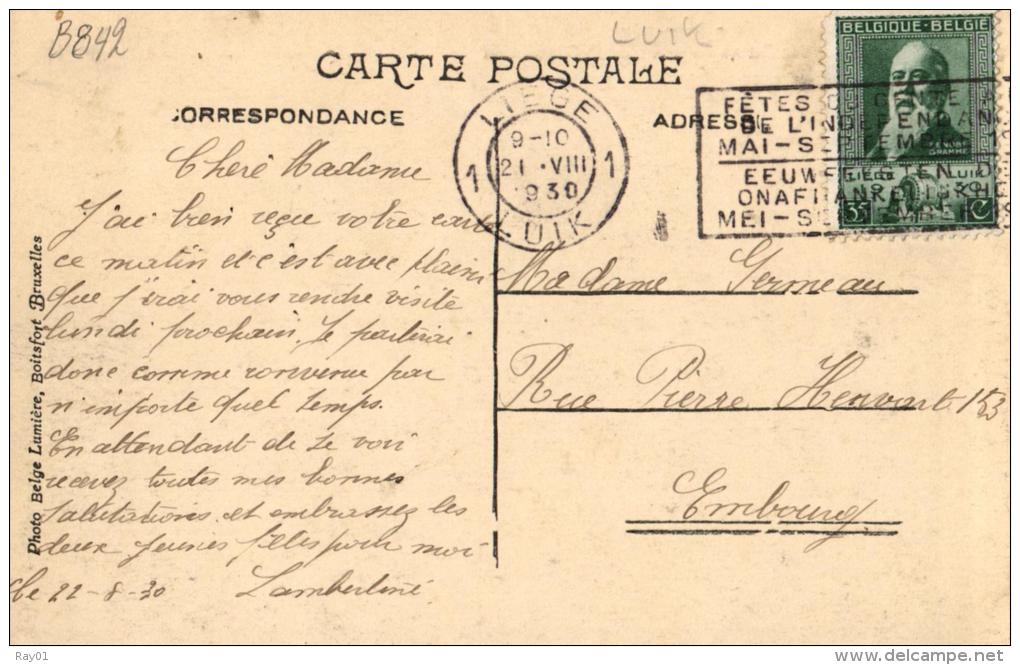 B842
LUIK
CARTE POSTALE
CORRESPONDANCE
ADRESSE
LIEGE
9-10
1 21 . VIII 1
1930
LUIK
BELGIQUE·BELGIE
LIÈGE LUIK
35 C
FÊTES DU CENTE
DE L'INDEPENDAN
MAI-SEPTEMBRE
EEUWFEESTEN D
ONAFHANKELIJKH
MEI-SEPTEMBER
Cheré Madame
J'ai bien reçue votre cart
ce matin et c'est avec plaisir
que j'irai vous rendre visite
lundi prochain. Je partirai
donc comme convenu par
n'importe quel temps.
En attendant de se voir
recevez toutes mes bonnes
salutations et embrassez les
deux jeunes filles pour moi
le 22-8-30 Lambertine
Madame Germeau
Rue Pierre Henvart 153
Embourg
Photo Belge Lumière, Boitsfort Bruxelles
Ray01
delcampe.net